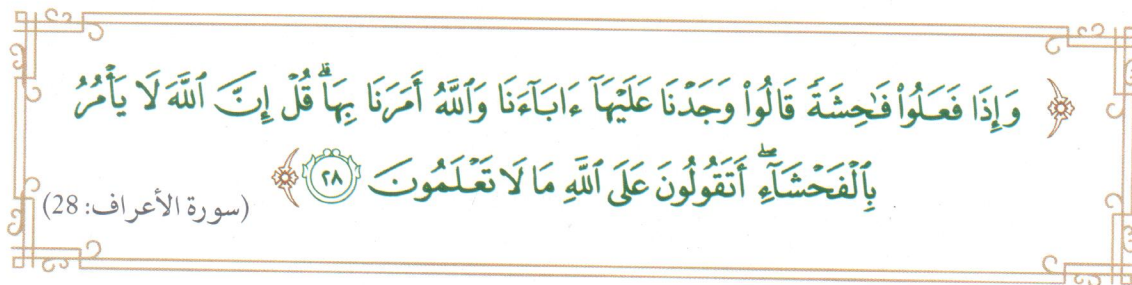 ﴿ وَإِذَا فَعَلُوا۟ فَٰحِشَةً قَالُوا۟ وَجَدْنَا عَلَيْهَآ ءَابَآءَنَا وَٱللَّهُ أَمَرَنَا بِهَا ۗ قُلْ إِنَّ ٱللَّهَ لَا يَأْمُرُ
بِٱلْفَحْشَآءِ ۖ أَتَقُولُونَ عَلَى ٱللَّهِ مَا لَا تَعْلَمُونَ ٢٨ ﴾ (سورة الأعراف: 28)